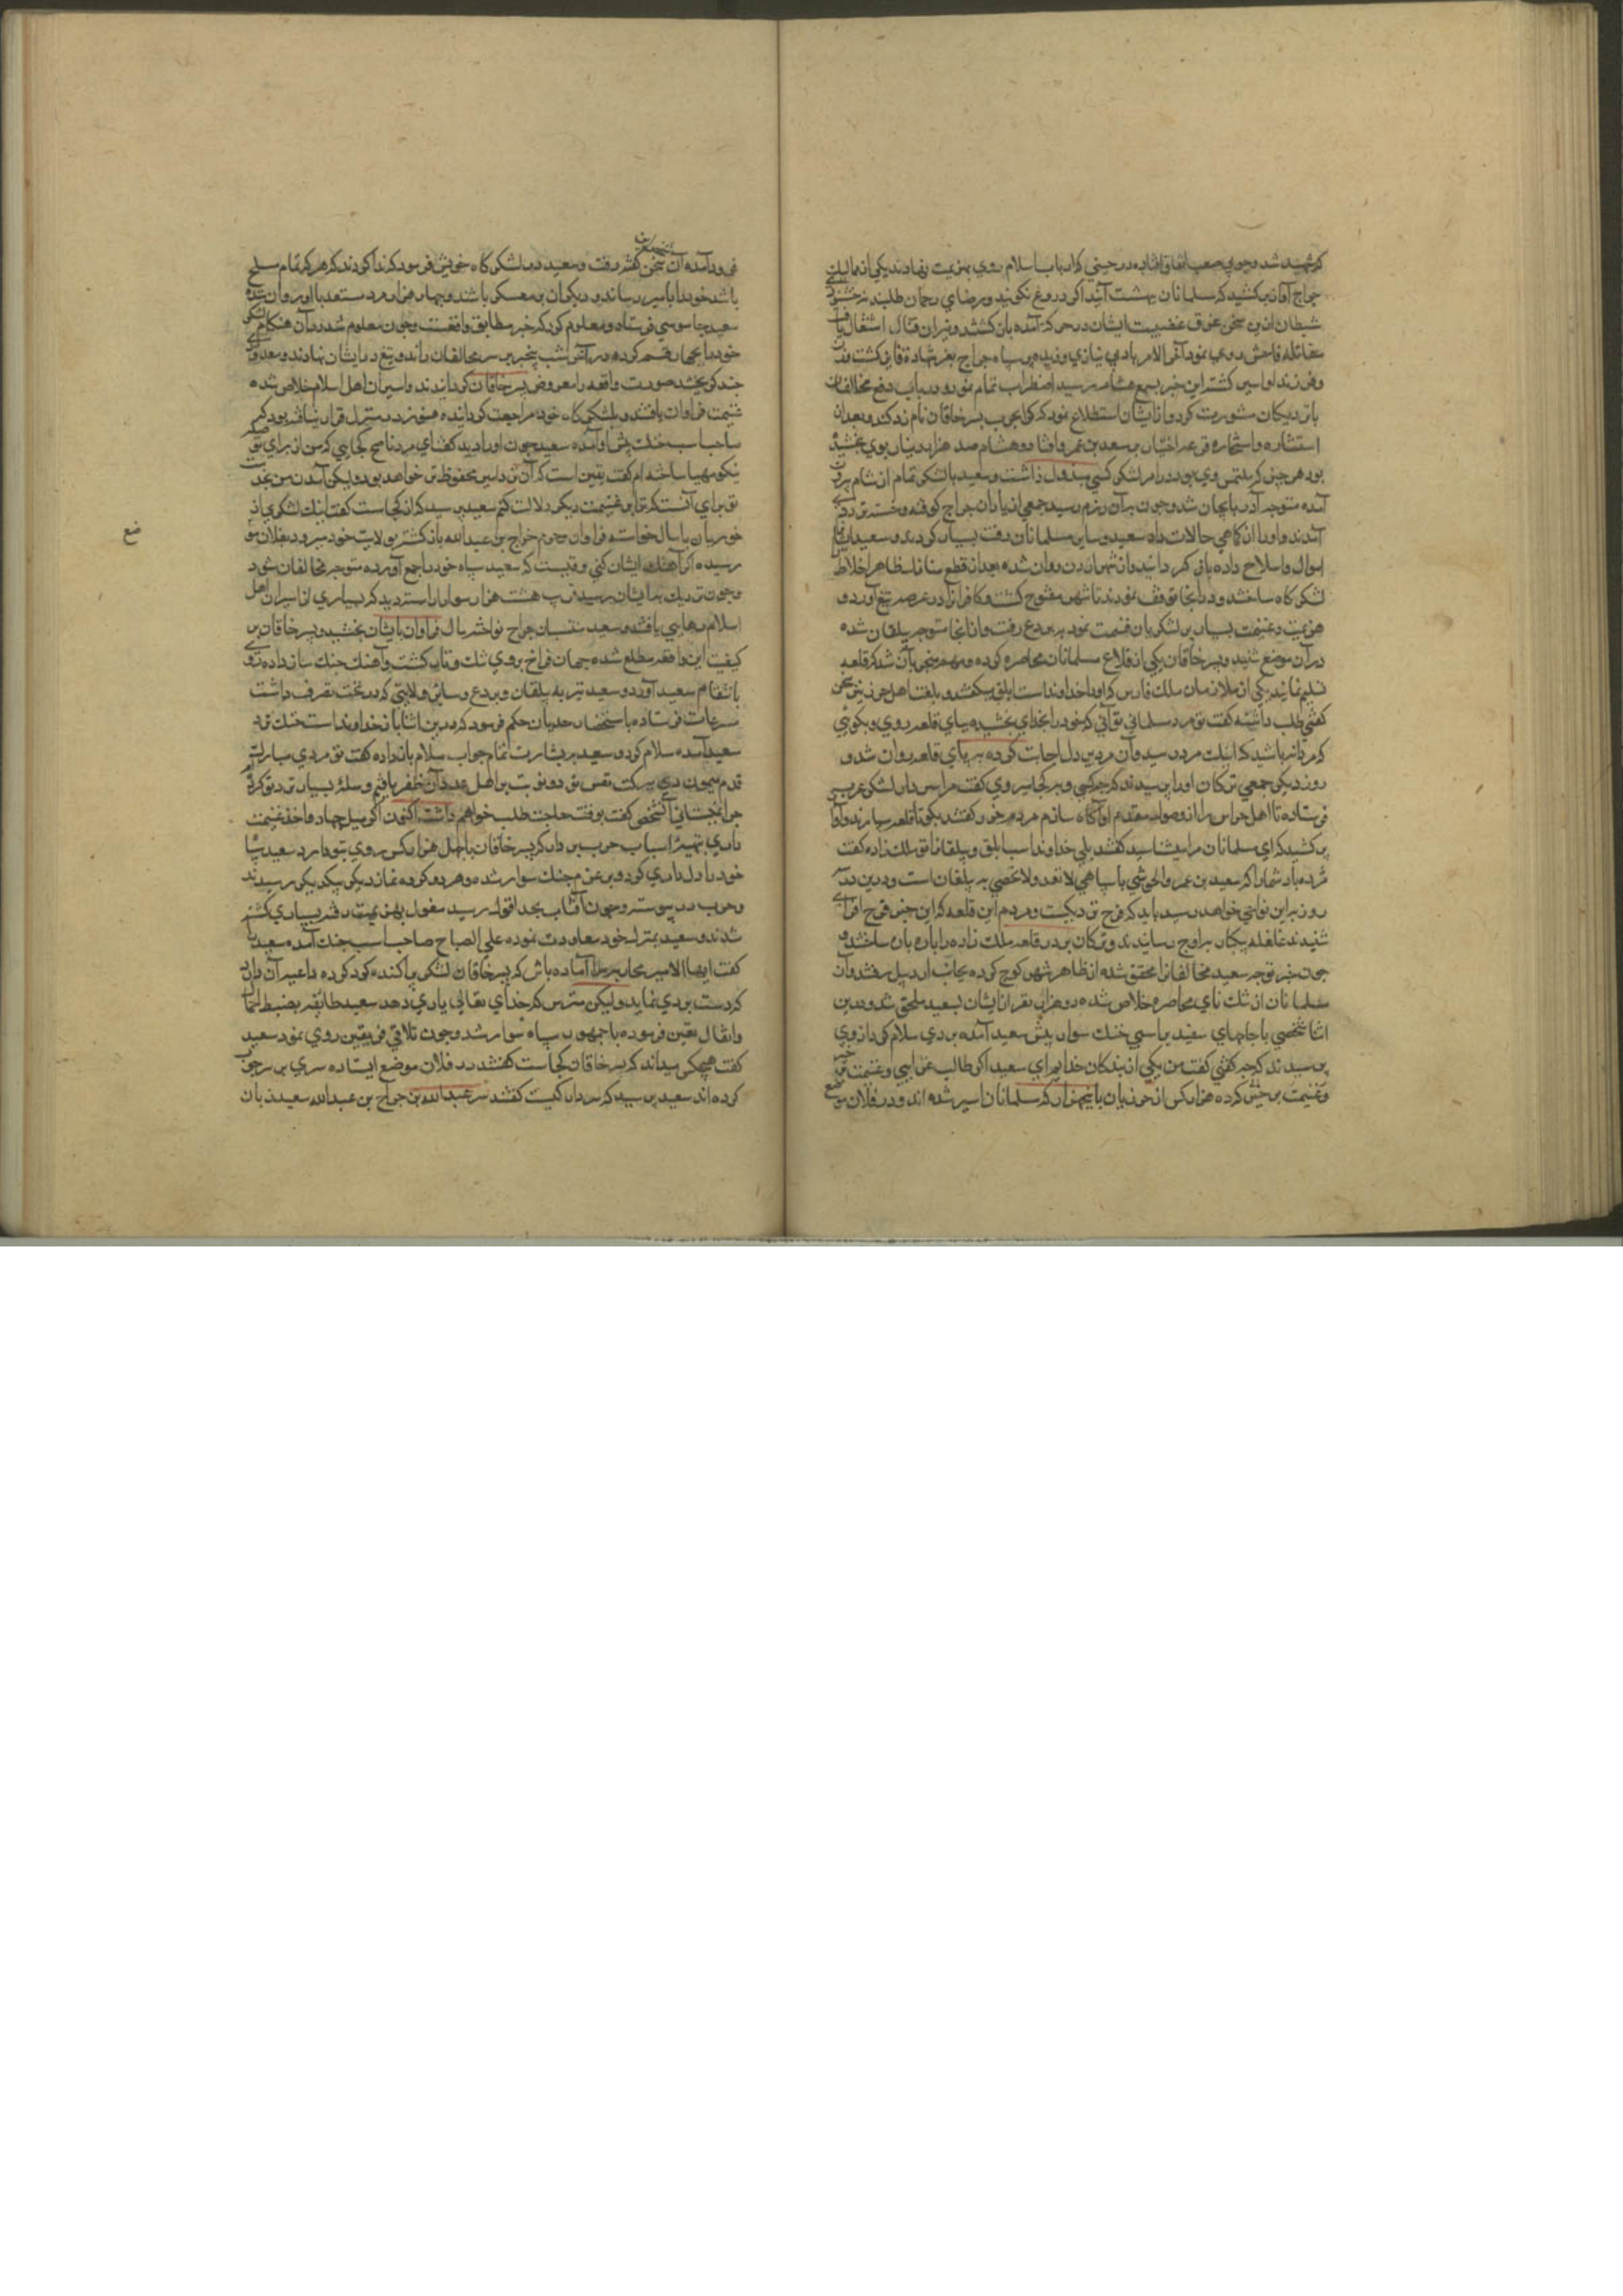 که شهید شد و حربی صعب اتفاق افتاده در حینی که ارباب اسلام روی بهزیمت نهادند یکی از
جراح آواز برکشید که مسلمانان بهشت آئید اگر دروغ نگویند و رضای رحمان طلبید نه خشنودی
شیطان ازین سخن عرق عصبیت ایشان در حرکت آمده باز گشتند و نیران قتال اشتعال یافت
مقاتله فاحش روی نمود آخر الامر باد بی نیازی وزیده سپاه جراح بعز شهادة فایز گشت
و فرزند او اسیر گشتند این خبر بسمع هشام رسید اضطراب تمام نمود و در باب دفع مخالفان
با نزدیکان مشورت کرد و از ایشان استطلاع نمود که کرا بحرب پسر خاقان نام زد کند و بعد از
استشاره و استخاره قرعه اختیار بر سعید بن عمرو افتاد و هشام صد هزار دینار بوی بخشید
بود هر چیز که ملتمس وی بود در امر لشکر کشی مبذول داشت و سعید با لشکر تمام از شام بیرون
آمده متوجه آذربایجان شد و چون بر آن رزم رسید جمعی از یاران جراح کوفته و خسته نزد وی
آمدند و او را از کماهی حالات داده سعید و سایر مسلمانان رقت بسیار کردند و سعید ایشانرا
اموال و سلاح داده باز گردانید و از شهر ارزن روان شده بعد از قطع منازل ظاهر اخلاط
لشکرگاه ساختند و در آنجا توقف نمودند تا شهر مفتوح گشت و کافرانرا در عرصه تیغ آورد و
هزیمت و غنیمت بسیار بر لشکریان قسمت نمود به بردع رفت و از آنجا متوجه بیلقان شده
در آن موضع شنید پسر خاقان یکی از قلاع مسلمانان محاصره کرده و مهم منجر بآن شد که قلعه
تسلیم نمایند یکی از ملازمان ملک فارس که او را خداوند است ابلق میگفتند و بلغت اهل خزر نیز سخن
گفتی طلب داشته گفت تو مرد مسلمانی توانی که خود را بخدای بخشیده بپای قلعه روی و بگوئی
که مردانه باشید که اینک مدد رسید و آن مرد بدل اجابت کرده به پای قلعه روان شد و
روز دیگر جمعی ترکان او را پرسیدند که چه کسی و بر کجا میروی گفت مرا سردار لشکر
فرستاده تا اهل حراس را از وصول مقدم او آگاه سازم مردم خزر گفتند بگو تا قلعه سپارند و آواز
بر کشید که ای مسلمانان مرا میشناسید گفتند بلی خداوند اسب ابلق و بیلقانی ملک زاده گفت
مژده باد شما را که سعید بن عمرو الحرشی با سپاهی لا تعد و لا تحصی به بیلقان است و درین
روز براین نواحی خواهد رسید باید که فرح نزدیکست و مردم این قلعه که این خبر فرح افزای
شنیدند غلغله بیکبار بر اوج رسانیدند و ترکان بر در قلعه ملک زاده را پاره پاره ساختند
چون خبر توجه سعید مخالفانرا محقق شده از ظاهر شهر کوچ کرده بجانب اردبیل رفتند و آن
مسلمانان از تنگنای محاصره خلاص شده دو هزار نفر از ایشان بسعید ملحق شد و درین
اثنا شخصی با جامهای سفید بر اسبی خنک سوار پیش سعید آمده بر وی سلام کرد از وی
پرسیدند که چه کسی گفت من یکی از بندگان خدایم ای سعید اگر طالب غزایی و غنیمت
و غنیمت بر حیش کرده هزار کس از خزریان با پنجهزار که مسلمانان اسیر شده اند و در فلان موضع
فرود آمده آن سخن گفته رفت و سعید در لشکرگاه خویش فرمود که ندا کردند که هر که تمام سلح
باشد خود را بامیر رساند و دیگران بر معسکر باشند و چهار هزار مرد مستعد با او روان شده
سعید جاسوسی فرستاد و معلوم کرد که خبر مطابق واقعست و چون معلوم شد در آن هنگام لشکر
خود را بچهار قسم کرده در آخر شب بیخبر بر سر مخالفان راند و تیغ در ایشان نهادند و معدودی
چند گریخته صورت واقعه را معروض پسر خاقان گردانیدند و اسیران اهل اسلام خلاص شده
غنیمت فراوان یافتند و بلشکرگاه خود مراجعت گردانیده هنوز در منزل قرار نیافته بود که
صاحب اسب خنک پیش او آمده سعید چون او را دید گفت ای مرد ناصح کجایی که من از برای تو
نیکو مهیا ساخته ام گفت یقین است که آن نزد امیر محفوظتر خواهد بود و لیکن آمدن من بخدمت
تو برای آنست که ترا بر غنیمت دیگر دلالت کنم سعید پرسید که آن کجاست گفت اینک لشکری از
خزریان با مال خواسته فراوان و حرم جراح بن عبدالله باز گشته بولایت خود میرود بفلان موضع
رسیده اگر آهنگ ایشان کنی وقتست که سعید سپاه خود را جمع آورده متوجه مخالفان شود
و چون نزدیک بدایشان رسید قریب هشت هزار سوار را راست دید که بسیاری از اسیران اهل
اسلام رهایی یافتند و سعید منتسبان جراح نواخته مال فراوان بایشان بخشید و پسر خاقان بر
کیفیت این واقعه مطلع شده جهان فراخ بر وی تنگ و تار گشت و آهنگ جنگ ساز داده روی
بانتقام سعید آورد و سعید نیز به بیلقان و بردع و سایر ولایتی که در تحت تصرف داشت
سرعان فرستاده باستحضار جلدیان حکم فرمود که درین اثنا باز خداوند اسب خنک نزد
سعید آمده سلام کرد و سعید به بشارت تمام جواب سلام باز داده گفت تو مردی مبارک
قدم میمون دمی ببرکت نفس تو دو نوبت بر اهل عدوان ظفر یافتم و صلهٔ بسیار نزد تو کرد
چرا نجستانی آن شخص گفت بوقت حاجت طلب خواهم داشت اکنون اگر میل جهاد و اخذ غنیمت
داری بتهیهٔ اسباب حرب پرداز که پسر خاقان با چهل هزار کس روی بتو دارد سعید سپاه
خود را دلداری کرد و بر عزم جنگ سوار شده و هر دو کروه نماز دیگر بیکدیگر رسیدند
و حرب در پیوسته و چون آفتاب بحد افول رسید مغول بهزیمت رفته بسیاری کشته
شدند و سعید بمنزل خود معاودت نموده علی الصباح صاحب اسب خنک آمده سعید را
گفت ایها الامیر محاربه را آماده باش که پسر خاقان لشکر پراکنده گرد کرده داعیه آن دارد
که دست بردی نماید و لیکن مترس که خدای تعالی یاری دهد سعید طائفه بضبط احمال
و اثقال تعیین فرموده با جمهور سپاه سوار شد و چون تلاقی فریقین روی نمود سعید
گفت هیچکس میداند که پسر خاقان کجاست گفتند در فلان موضع ایستاده سری بر سر چوب
کرده اند سعید پرسید که سر دار کیست گفتند سر عبدالله بن جراح بن عبدالله سعید زبان
ضع